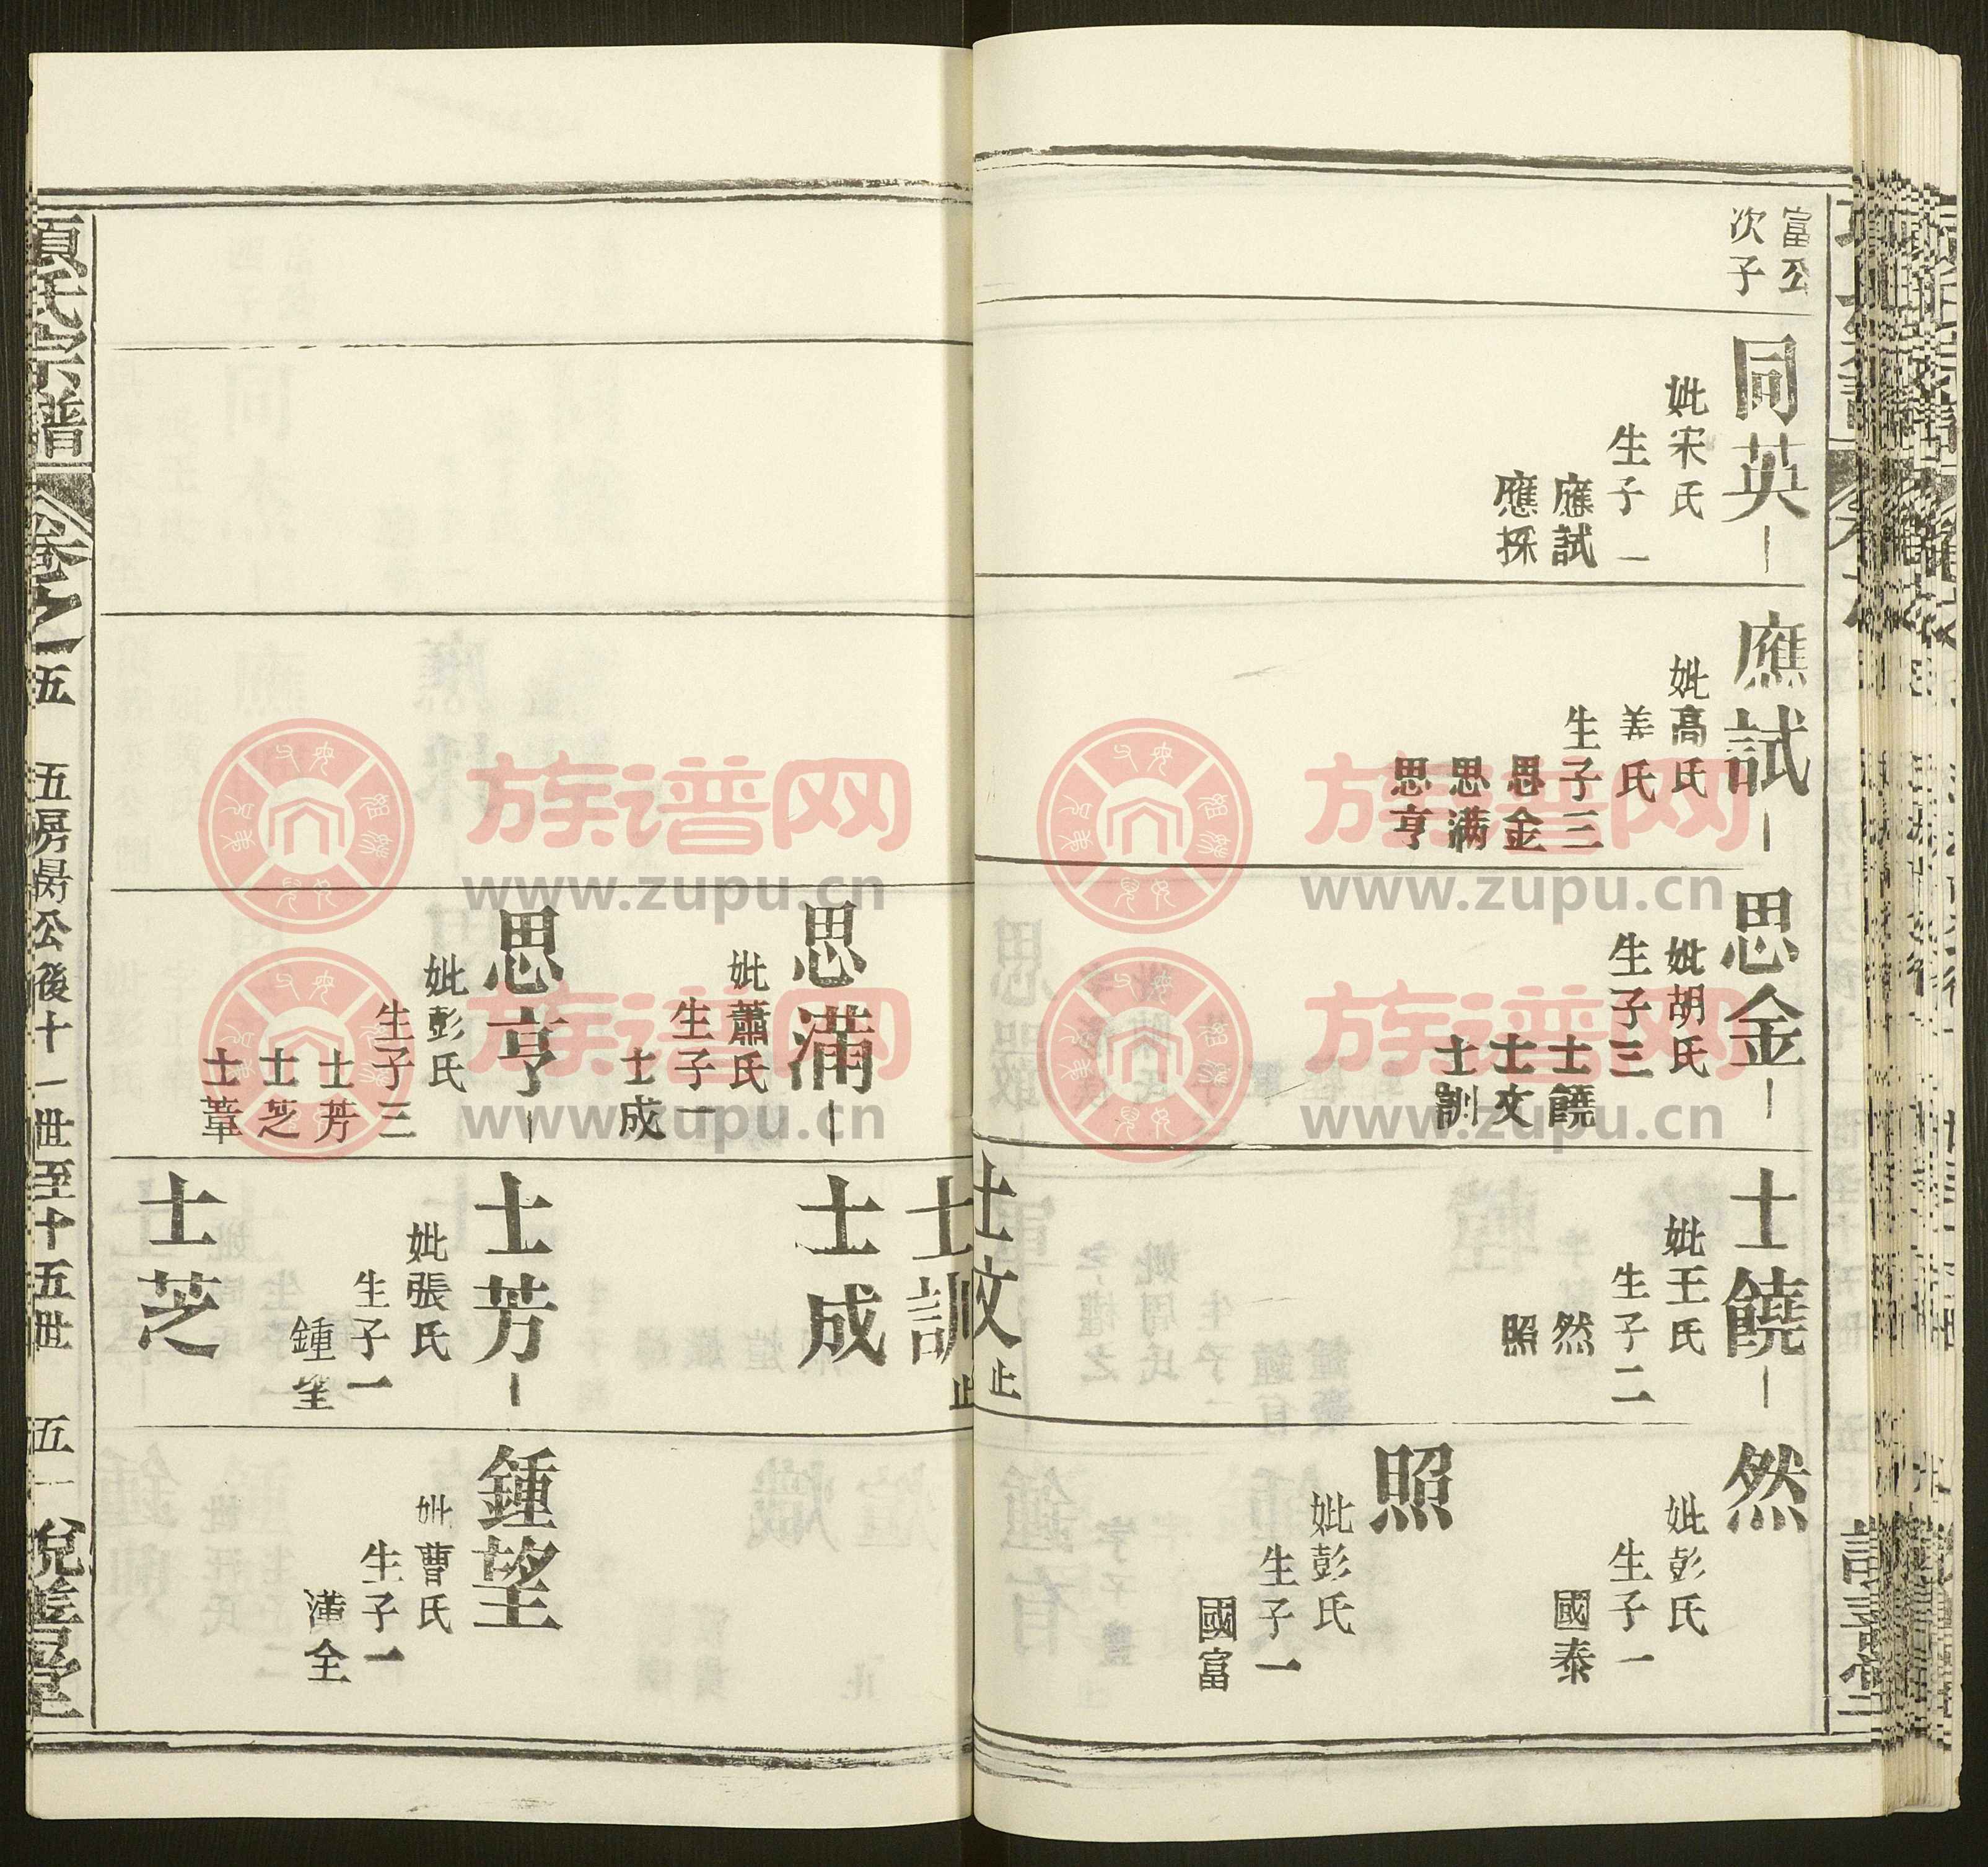 富公
次子
同英
妣宋氏
生子一
應試
應採
應試
妣高氏
姜氏
生子三
思金
思滿
思亨
思金
妣胡氏
生子三
士饒
士文
士訓
士饒
妣王氏
生子二
然
照
士文止
然
妣彭氏
生子一
國泰
照
妣彭氏
生子一
國富
思滿
妣蕭氏
生子一
士成
思亨
妣彭氏
生子三
士芳
士芝
士葦
士訓止
士成
士芳
妣張氏
生子一
鍾望
士芝
鍾望
妣曹氏
生子一
漢全
項氏宗譜
卷之一
五
五房昺公後十一世至十五世
五一
悅善堂
族谱网
www.zupu.cn
族谱网
www.zupu.cn
族谱网
www.zupu.cn
族谱网
www.zupu.cn